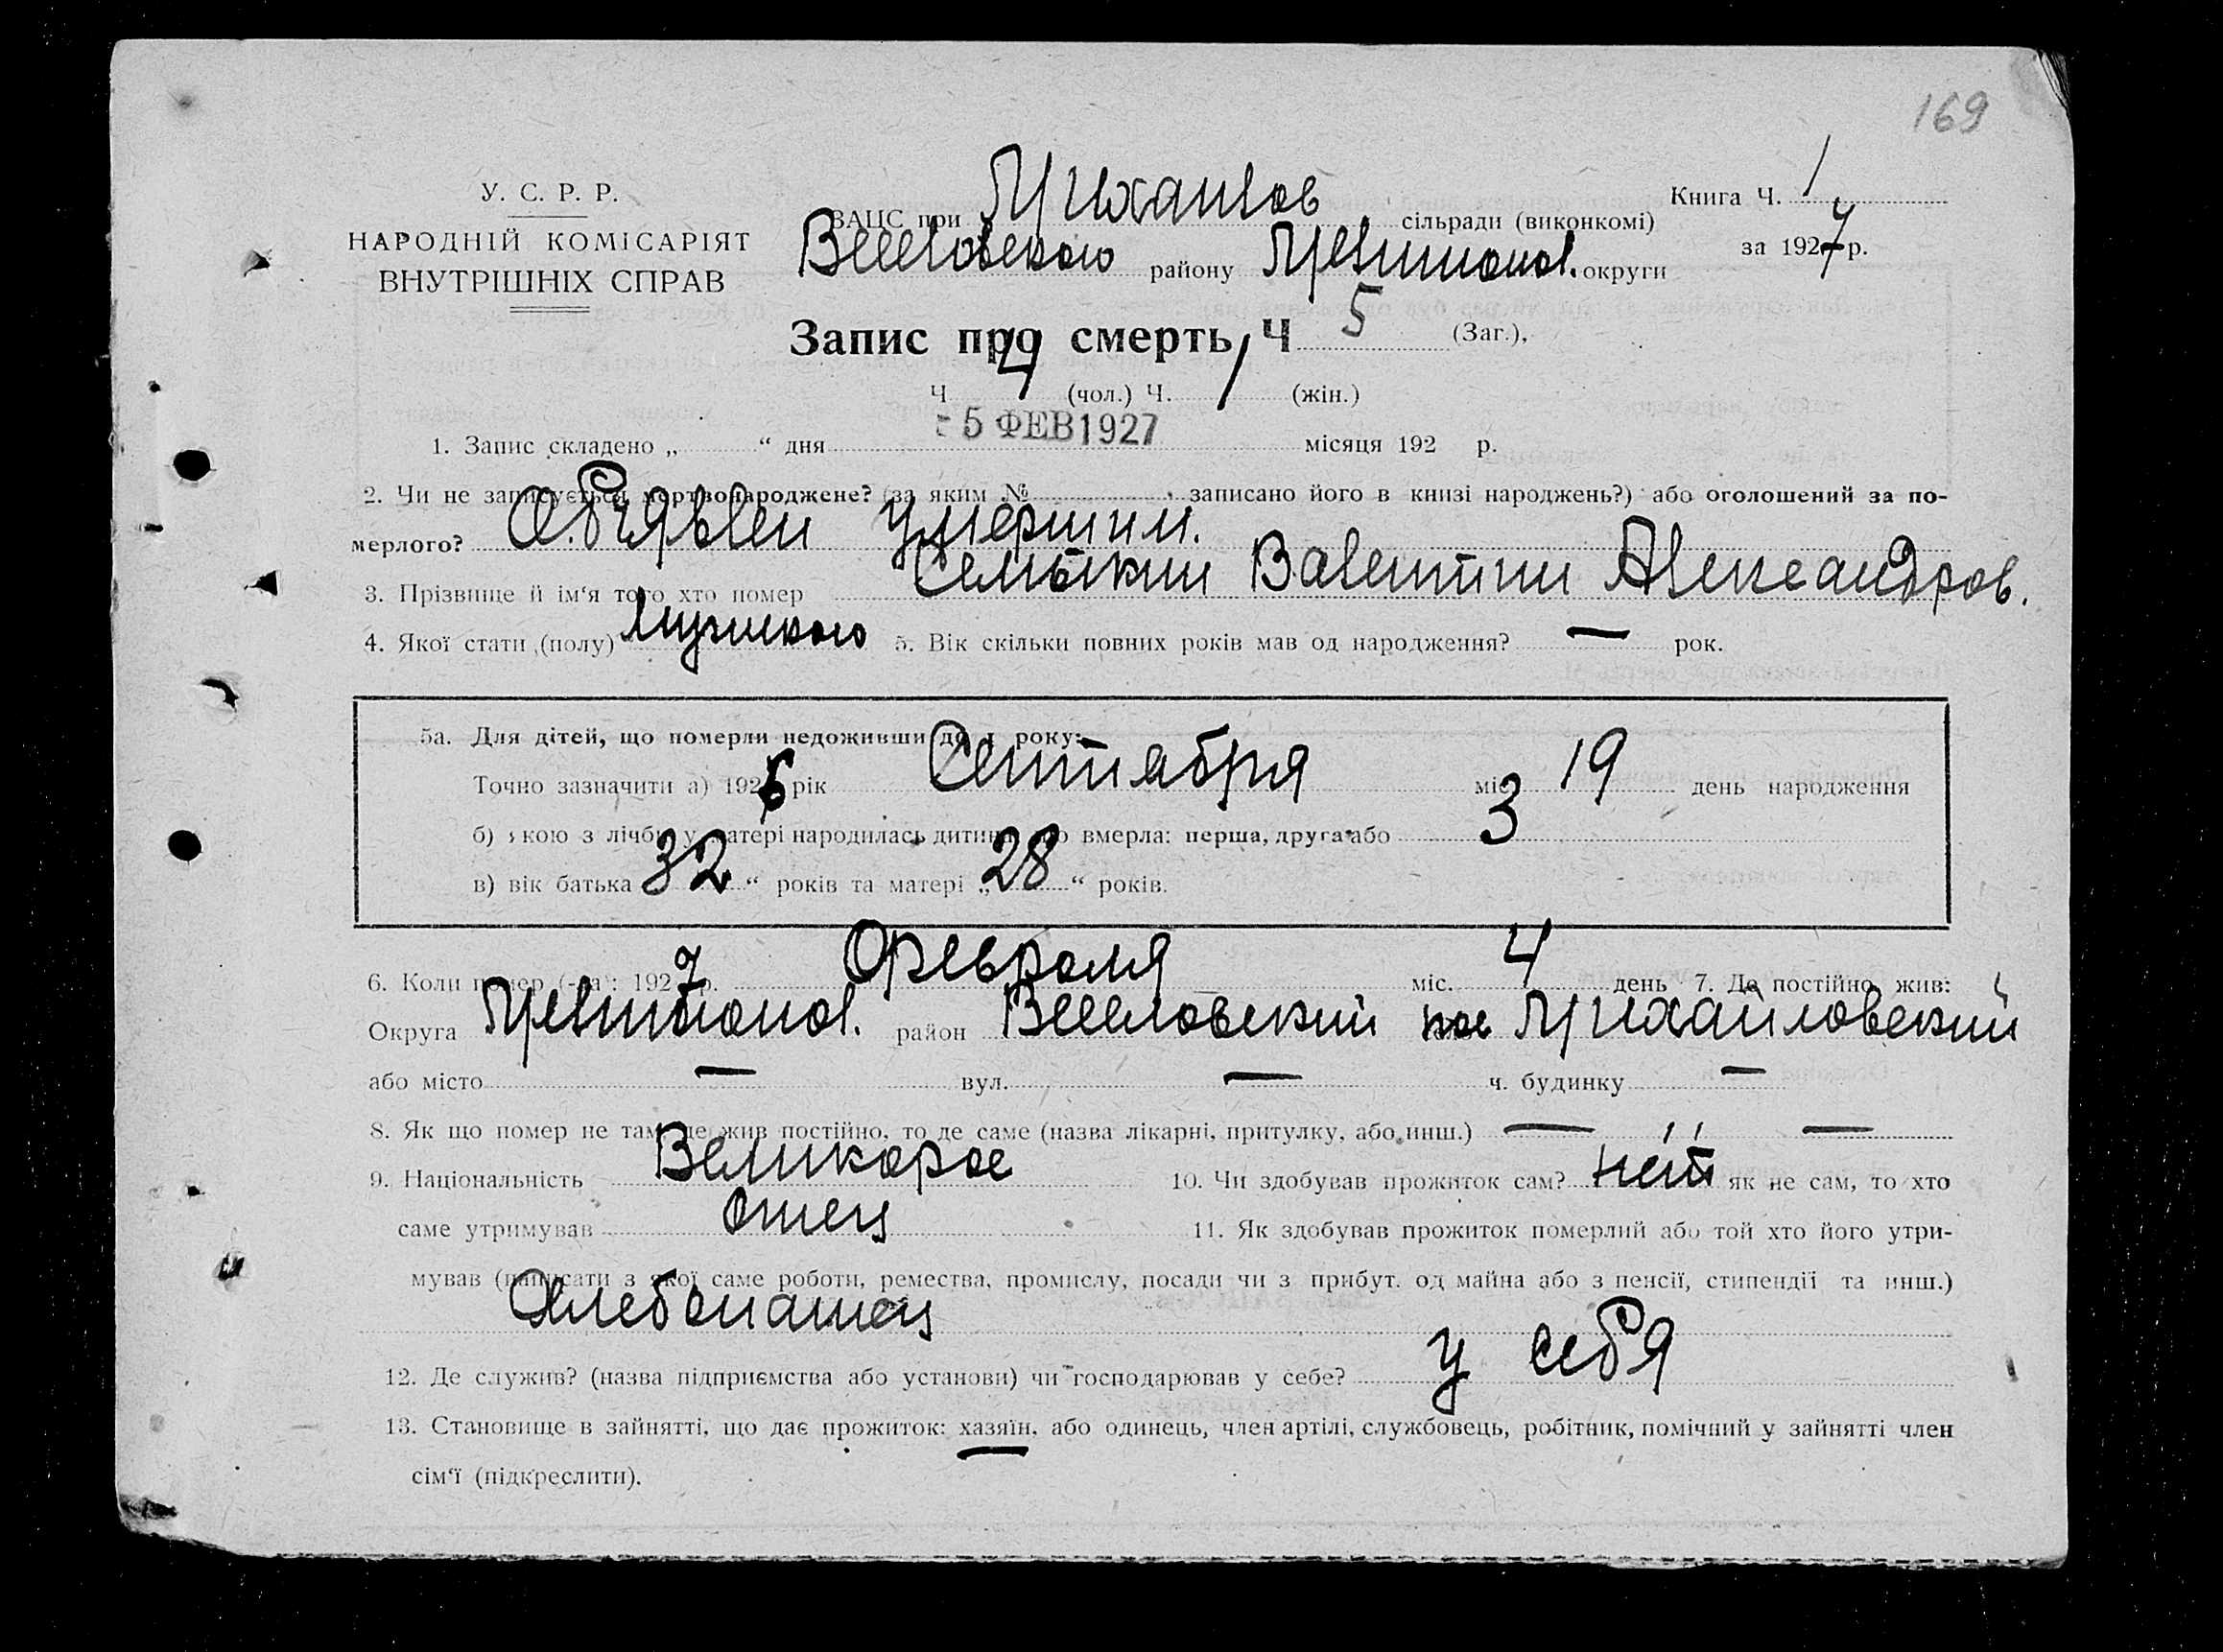 169
У. С. Р. Р.
НАРОДНІЙ КОМІСАРІЯТ
ВНУТРІШНІХ СПРАВ
ЗАЦС при Михайлов сільради (виконкомі)
Веселовского району Мелитопол. округи
Книга Ч. 1
за 1927 р.
Запис про смерть Ч 5 (Заг.),
Ч 4 (чол.) Ч. / (жін.)
- 5 ФЕВ 1927
1. Запис складено „ “ дня місяця 192 р.
2. Чи не записується мертвонароджене? (за яким № записано його в книзі народжень?) або оголошений за по-
мерлого? Объявлен умершим.
3. Прізвище й ім‘я того хто помер Семыкин Валентин Александров.
4. Якої стати (полу) Мужского 5. Вік скільки повних років мав од народження? — рок.
5а. Для дітей, що померли недоживши до 1 року:
Точно зазначити а) 1926 рік Сентября міс. 19 день народження
б) якою з лічби у матері народилась дитина, що вмерла: перша, друга або 3
в) вік батька 32 “ років та матері „ 28 “ років.
6. Коли помер (-ла): 1927 р. Февраля міс. 4 день 7. Де постійно жив:
Округа Мелитопол. район Веселовский пос Михайловский
або місто — вул. — ч. будинку —
8. Як що помер не там, де жив постійно, то де саме (назва лікарні, притулку, або инш.) — —
9. Національність Великорос 10. Чи здобував прожиток сам? нет як не сам, то хто
саме утримував Отец 11. Як здобував прожиток померлий або той хто його утри-
мував (написати з якої саме роботи, ремества, промислу, посади чи з прибут. од майна або з пенсії, стипендії та инш.)
Хлебопашец
12. Де служив? (назва підприємства або установи) чи господарював у себе? у себя
13. Становище в зайнятті, що дає прожиток: хазяїн, або одинець, член артілі, службовець, робітник, помічний у зайнятті член
сім‘ї (підкреслити).